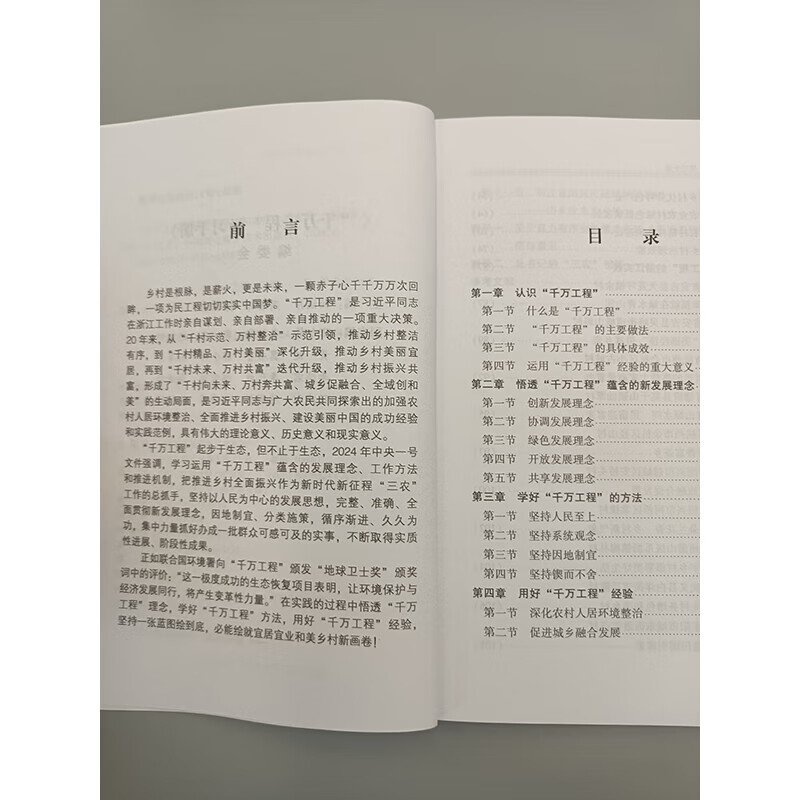 前言
乡村是根脉，是薪火，更是未来，一颗赤子心千千万万次回
眸，一项为民工程切切实实中国梦。“千万工程”是习近平同志
在浙江工作时亲自谋划、亲自部署、亲自推动的一项重大决策。
20年来，从“千村示范、万村整治”示范引领，推动乡村整洁
有序，到“千村精品、万村美丽”深化升级，推动乡村美丽宜
居，再到“千村未来、万村共富”迭代升级，推动乡村振兴共
富，形成了“千村向未来、万村奔共富、城乡促融合、全域创和
美”的生动局面，是习近平同志与广大农民共同探索出的加强农
村人居环境整治、全面推进乡村振兴、建设美丽中国的成功经验
和实践范例，具有伟大的理论意义、历史意义和现实意义。
“千万工程”起步于生态，但不止于生态，2024年中央一号
文件强调，学习运用“千万工程”蕴含的发展理念、工作方法
和推进机制，把推进乡村全面振兴作为新时代新征程“三农”
工作的总抓手，坚持以人民为中心的发展思想，完整、准确、全
面贯彻新发展理念，因地制宜、分类施策，循序渐进、久久为
功，集中力量抓好办成一批群众可感可及的实事，不断取得实质
性进展、阶段性成果。
正如联合国环境署向“千万工程”颁发“地球卫士奖”颁奖
词中的评价：“这一极度成功的生态恢复项目表明，让环境保护与
经济发展同行，将产生变革性力量。”在实践的过程中悟透“千万
工程”理念，学好“千万工程”方法，用好“千万工程”经验，
坚持一张蓝图绘到底，必能绘就宜居宜业和美乡村新画卷！
目录
第一章 认识“千万工程”
第一节 什么是“千万工程”
第二节 “千万工程”的主要做法
第三节 “千万工程”的具体成效
第四节 运用“千万工程”经验的重大意义
第二章 悟透“千万工程”蕴含的新发展理念
第一节 创新发展理念
第二节 协调发展理念
第三节 绿色发展理念
第四节 开放发展理念
第五节 共享发展理念
第三章 学好“千万工程”的方法
第一节 坚持人民至上
第二节 坚持系统观念
第三节 坚持因地制宜
第四节 坚持锲而不舍
第四章 用好“千万工程”经验
第一节 深化农村人居环境整治
第二节 促进城乡融合发展